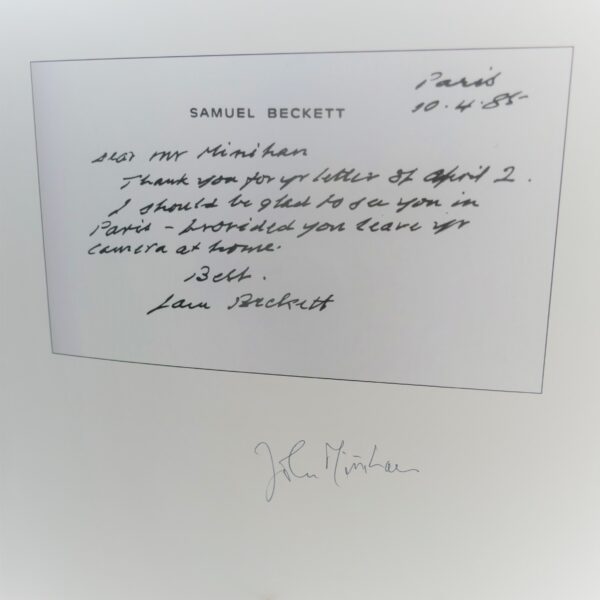 Paris
10.4.85
SAMUEL BECKETT
Dear Mr Minihan
Thank you for yr letter of April 2.
I should be glad to see you in
Paris - provided you leave yr
camera at home.
Best.
Sam Beckett
John Minihan